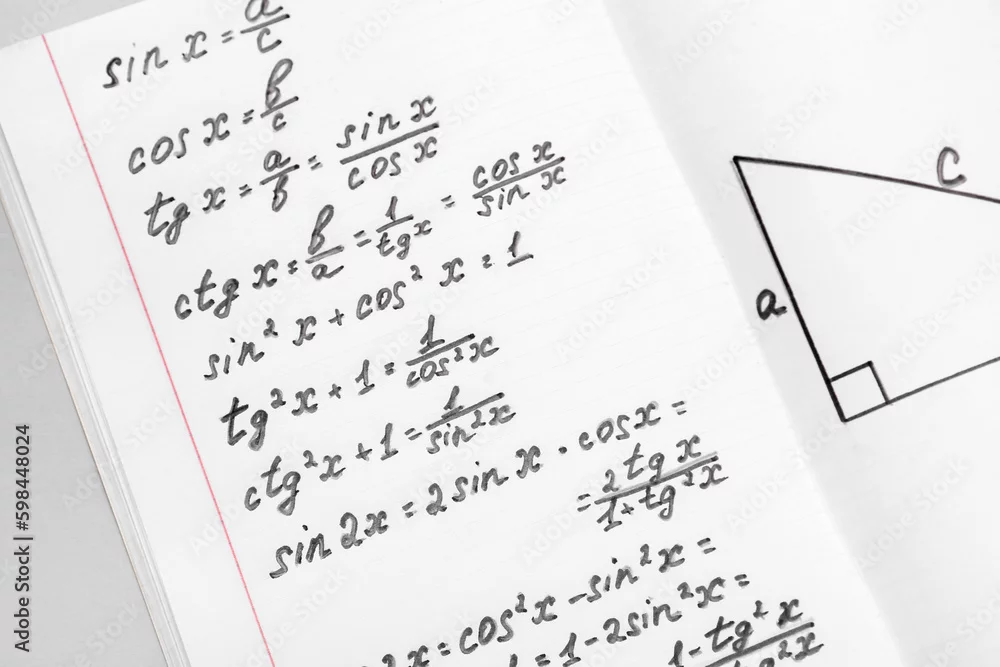 sin x = a/c
cos x = b/c
tg x = a/b = sin x/cos x
ctg x = b/a = 1/tg x = cos x/sin x
sin² x + cos² x = 1
tg² x + 1 = 1/cos² x
ctg² x + 1 = 1/sin² x
sin 2x = 2 sin x · cos x =
= 2 tg x/1 + tg² x
2x = cos² x - sin² x =
= 1 - 2 sin² x =
1 - tg² x/tg² x
C
a
Adobe Stock | #598448024